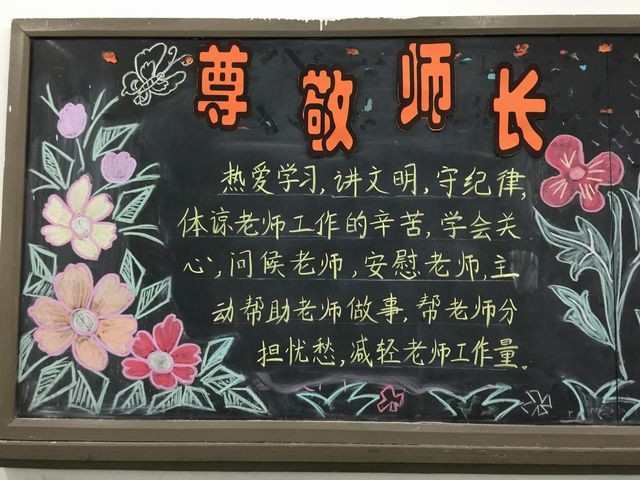 尊敬师长
热爱学习,讲文明,守纪律,
体谅老师工作的辛苦,学会关
心,问候老师,安慰老师,主
动帮助老师做事,帮老师分
担忧愁,减轻老师工作量。